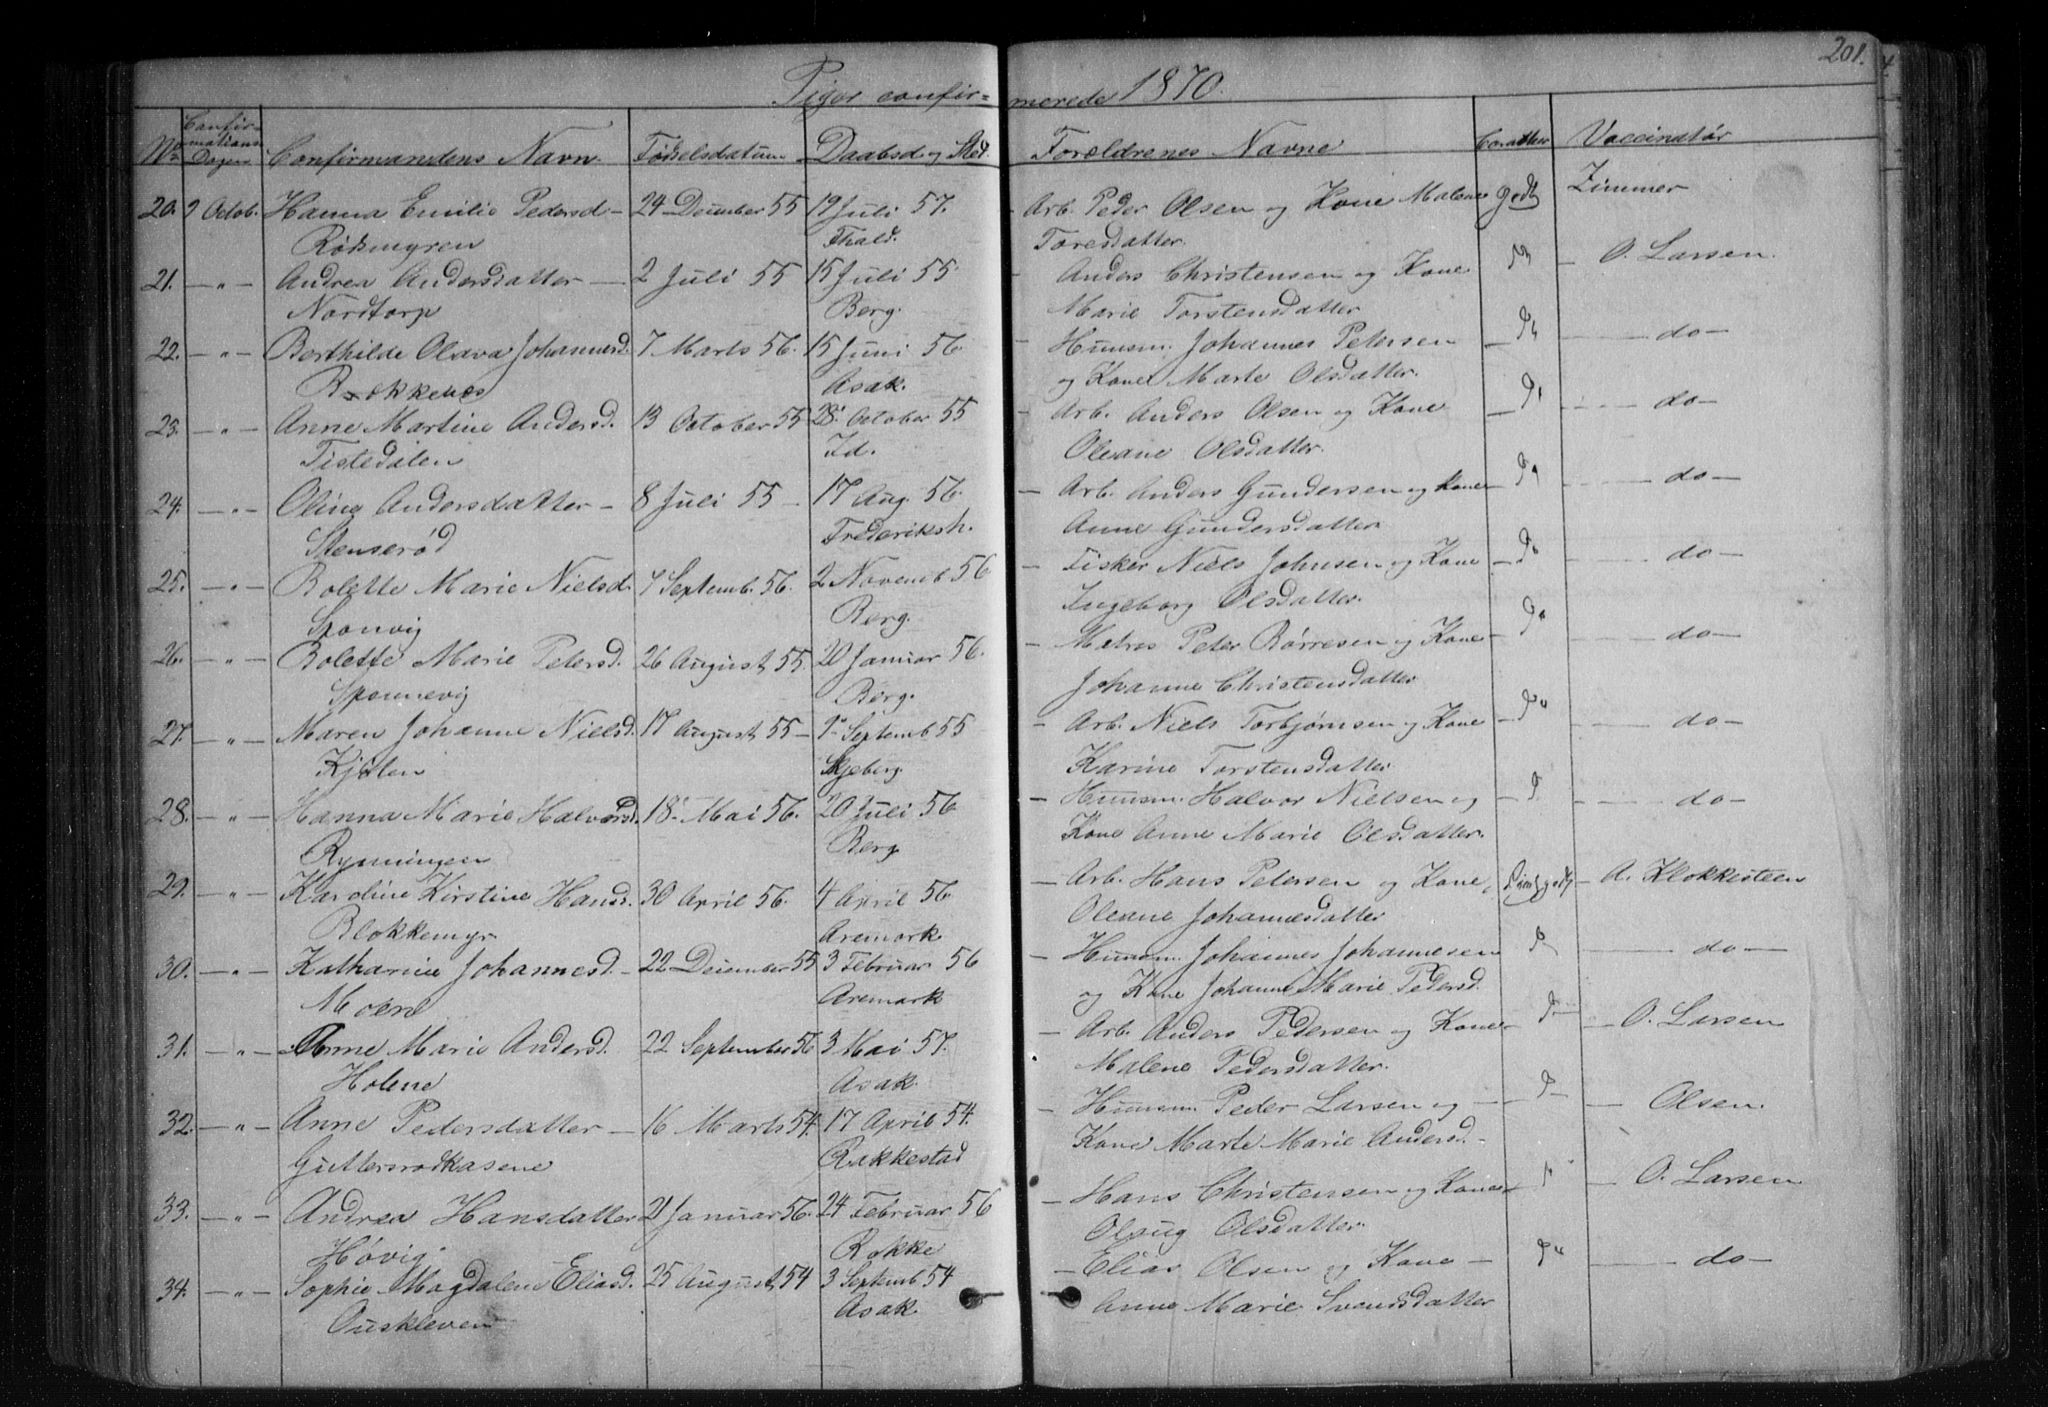 201.
Piger confirmerede 1870.
No Confirmations Dagen Confirmandens Navn. Fødselsdatum Daabsd. og Sted. Forældrenes Navne Caracter Vaccinatør
20. 2 Octob. Hanna Emilie Pedersd. 24 December 55 19 Juli 57. Arb. Peder Olsen og Kone Malene godt Zimmer
Rødsmyren Thald. Toresdatter.
21. — " — Andrea Andersdatter 2 Juli 55 15 Juli 55 Anders Christensen og Kone O. Larsen.
Nordtorp Berg. Marie Torstensdatter
22. — " — Berthilde Olava Johannesd. 7 Marts 56. 15 Juni 56 Huusm. Johannes Petersen do
Asak. og Kone Marte Olsdatter.
23. — " — Anne Martine Andersd. 13 October 55 28 October 55 Arb. Anders Olsen og Kone do
Tistedalen Id. Oleane Olsdatter.
24. — " — Oline Andersdatter 8 Juli 55 17 Aug. 56. Arb. Anders Gundersen og Kone do
Stenserød Frederiksh. Anne Gundersdatter
25. — " — Bolette Marie Nielsd. 7 Septemb. 56. 2 Novemb 56 Fisker Niels Johnsen og Kone do
Sponvig Berg. Ingeborg Olsdatter.
26. — " — Bolette Marie Petersd. 26 August 55 20 Januar 56. Matros Peter Børresen og Kone do
Sponnevig Berg. Johanne Christensdatter
27. — " — Maren Johanne Nielsd. 17 August 55 1 Septemb 55 Arb. Niels Torbjørnsen og Kone do
Kjølen Skjeberg. Karine Torstensdatter
28. — " — Hanna Marie Halvorsd. 18 Mai 56. 20 Juli 56 Huusm. Halvor Nielsen og do
Rynningen Berg Kone Anne Marie Olsdatter.
29. — " — Karoline Kirstine Hansd. 30 April 56. 4 April 56 Arb. Hans Petersen og Kone A. Klokkesteen
Blokkemyr Aremark Oleane Johannesdatter
30. — " — Katharine Johannesd. 22 December 55 3 Februar 56 Huusm. Johannes Johannesen do
Moen Aremark og Kone Johanne Marie Pedersd.
31. — " — Anne Marie Andersd. 22 September 56 3 Mai 57. Arb. Anders Pedersen og Kone O. Larsen
Holene Asak. Malene Pedersdatter.
32. — " — Anne Pedersdatter 16 Marts 54. 17 April 54. Huusm. Peder Larsen og Olsen.
Guttersrødkasene Rakkestad Kone Marte Marie Andersd.
33. — " — Andrea Hansdatter 21 Januar 56. 24 Februar 56 Hans Christensen og Kone O. Larsen
Høvig Rokke Olaug Olsdatter.
34. — " — Sophie Magdalene Eliasd. 25 August 54 3 Septemb 54 Elias Olsen og Kone do
Ouskleven Asak Anne Marie Svendsdatter